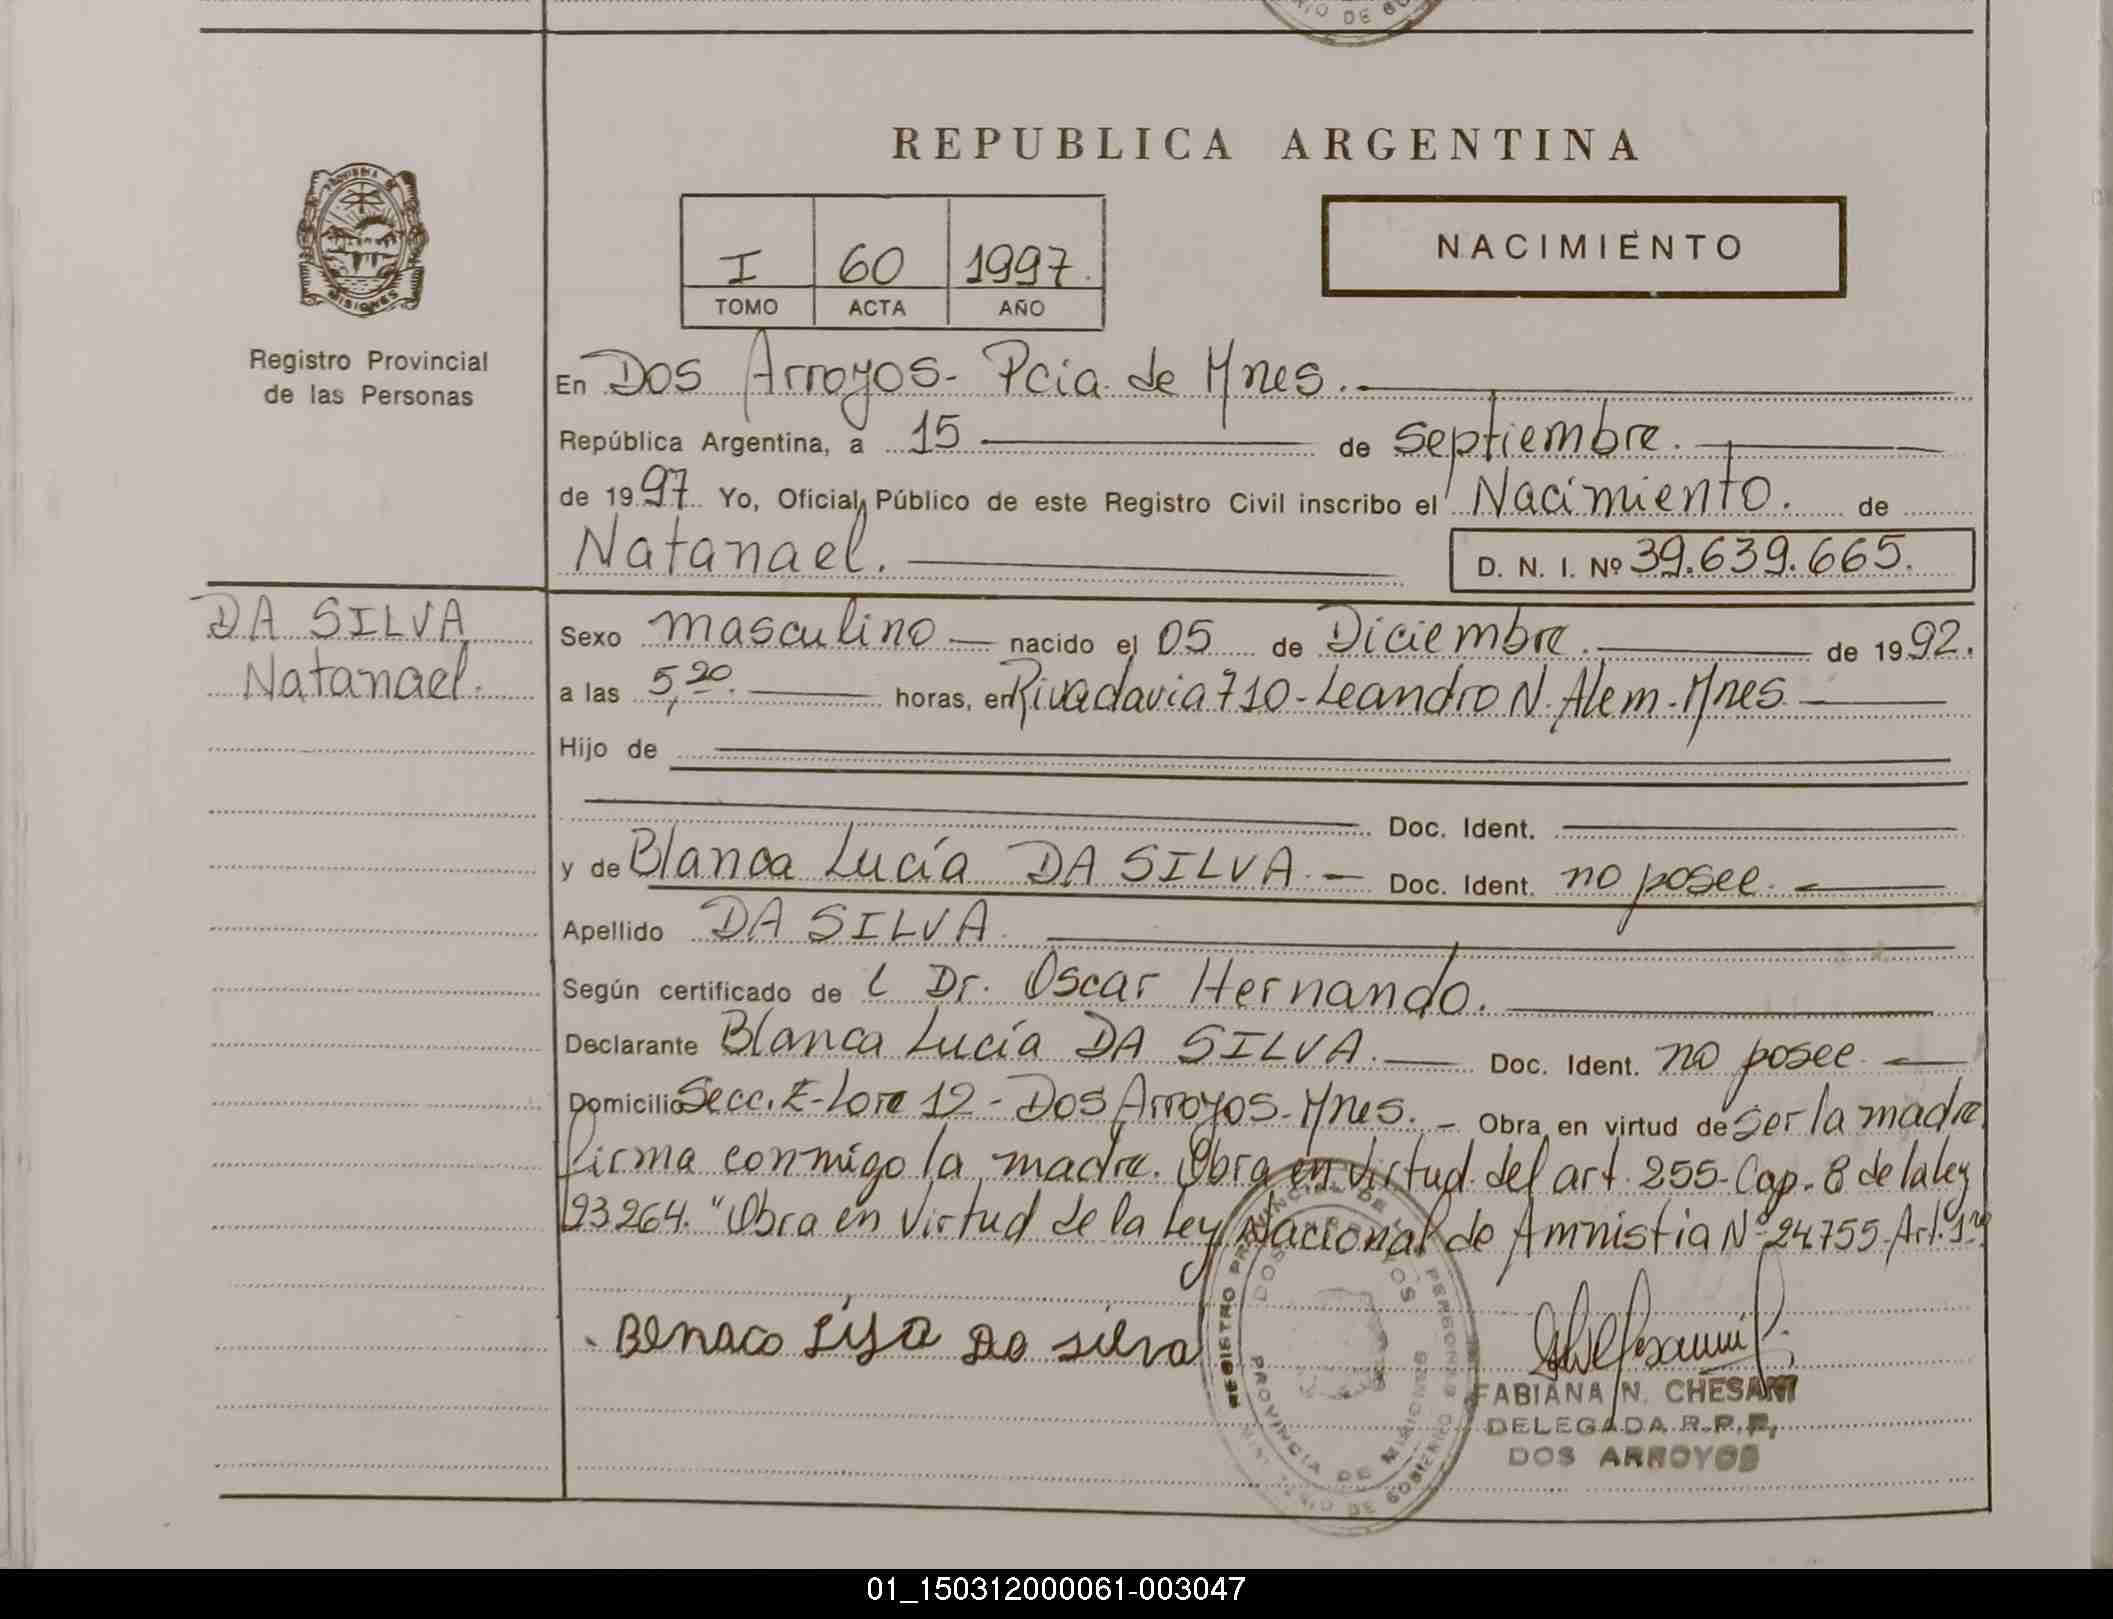 REPUBLICA ARGENTINA
NACIMIENTO
I 60 1997.
TOMO ACTA AÑO
MISIONES
Registro Provincial
de las Personas
En Dos Arroyos- Pcia. de Mnes.
República Argentina, a 15 de Septiembre.
de 1997 Yo, Oficial Público de este Registro Civil inscribo el Nacimiento. de
Natanael. D. N. I. Nº 39.639.665.
DA SILVA
Natanael.
Sexo masculino nacido el 05 de Diciembre. de 1992.
a las 5,20. horas, en Rivadavia 710-Leandro N. Alem-Mnes.
Hijo de
Doc. Ident.
y de Blanca Lucía DA SILVA.- Doc. Ident. no posee.
Apellido DA SILVA.
Según certificado de l Dr. Oscar Hernando.
Declarante Blanca Lucía DA SILVA. Doc. Ident. no posee.
Domicilio Secc. E-Lote 12-Dos Arroyos-Mnes.- Obra en virtud de ser la madre
firma conmigo la madre. Obra en virtud del art. 255-Cap. 8 de la ley
193264. "Obra en virtud de la Ley Nacional de Amnistia Nº 24.755-Art. 1º
Blnaco Lisa Da silva
REGISTRO PROVINCIAL DE LAS PERSONAS
DOS ARROYOS
PROVINCIA DE MISIONES
MINISTERIO DE GOBIERNO
FABIANA N. CHESANI
DELEGADA R.P.P.
DOS ARROYOS
01_150312000061-003047